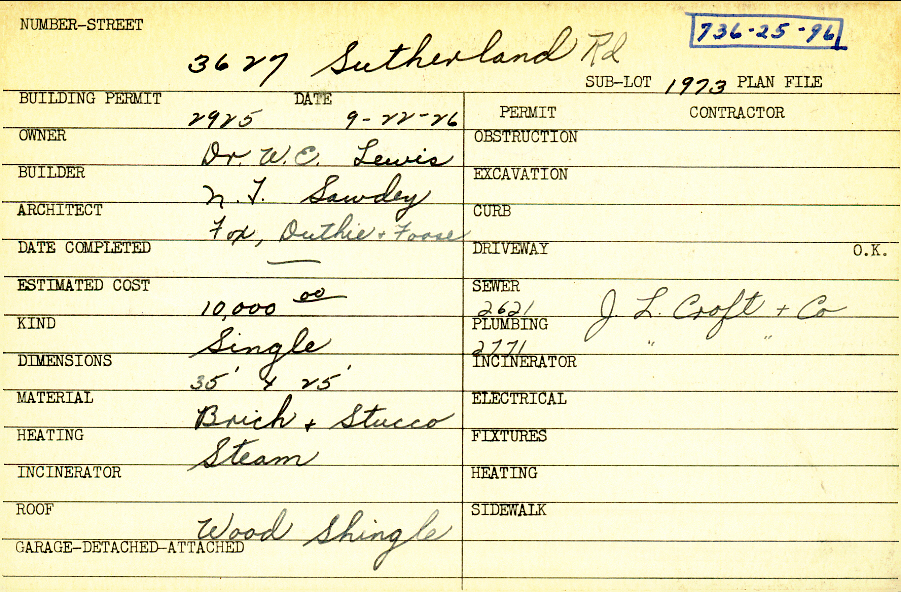 NUMBER-STREET
736-25-96
3627 Sutherland Rd
SUB-LOT 1973 PLAN FILE
BUILDING PERMIT 2925 DATE 9-22-26
PERMIT CONTRACTOR
OWNER Dr. W. C. Lewis
OBSTRUCTION
BUILDER N. T. Sawdey
EXCAVATION
ARCHITECT Fox, Duthie + Foose
CURB
DATE COMPLETED —
DRIVEWAY O.K.
ESTIMATED COST 10,000 00
SEWER 2621 J. L. Croft + Co
KIND Single
PLUMBING 2771 " "
DIMENSIONS 35' x 25'
INCINERATOR
MATERIAL Brick + Stucco
ELECTRICAL
HEATING Steam
FIXTURES
INCINERATOR
HEATING
ROOF Wood Shingle
SIDEWALK
GARAGE-DETACHED-ATTACHED